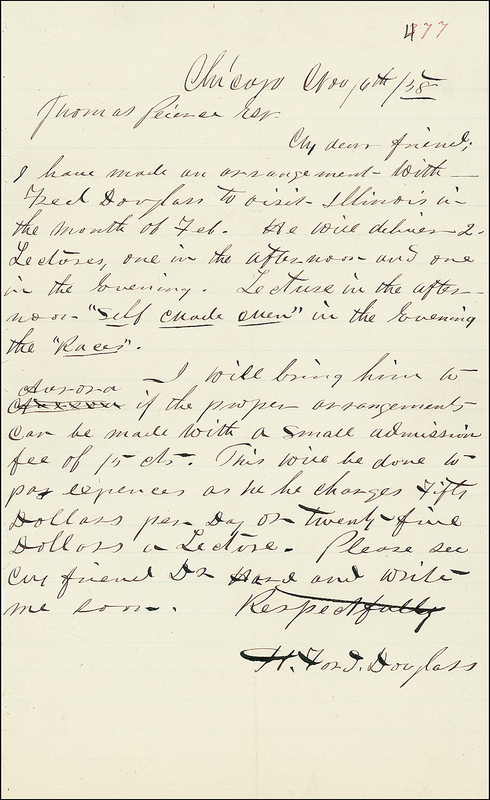 477
Chicago Nov 6th/58
Thomas Peirce Esq.
My dear friend;
I have made an arrangement with
Fred Douglass to visit Illinois in
the month of Feb. He will deliver 2
Lectures, one in the afternoon and one
in the Evening. Lecture in the after-
noon "Self Made Men" in the Evening
the "Races".
I will bring him to
Aurora if the proper arrangements
can be made with a small admission
fee of 15 cts. This will be done to
pay expences as he he charges Fifty
Dollars per Day or twenty-five
Dollars a Lecture. Please see
my friend Dr Hard and write
me soon. Respectfully
H. Ford. Douglass